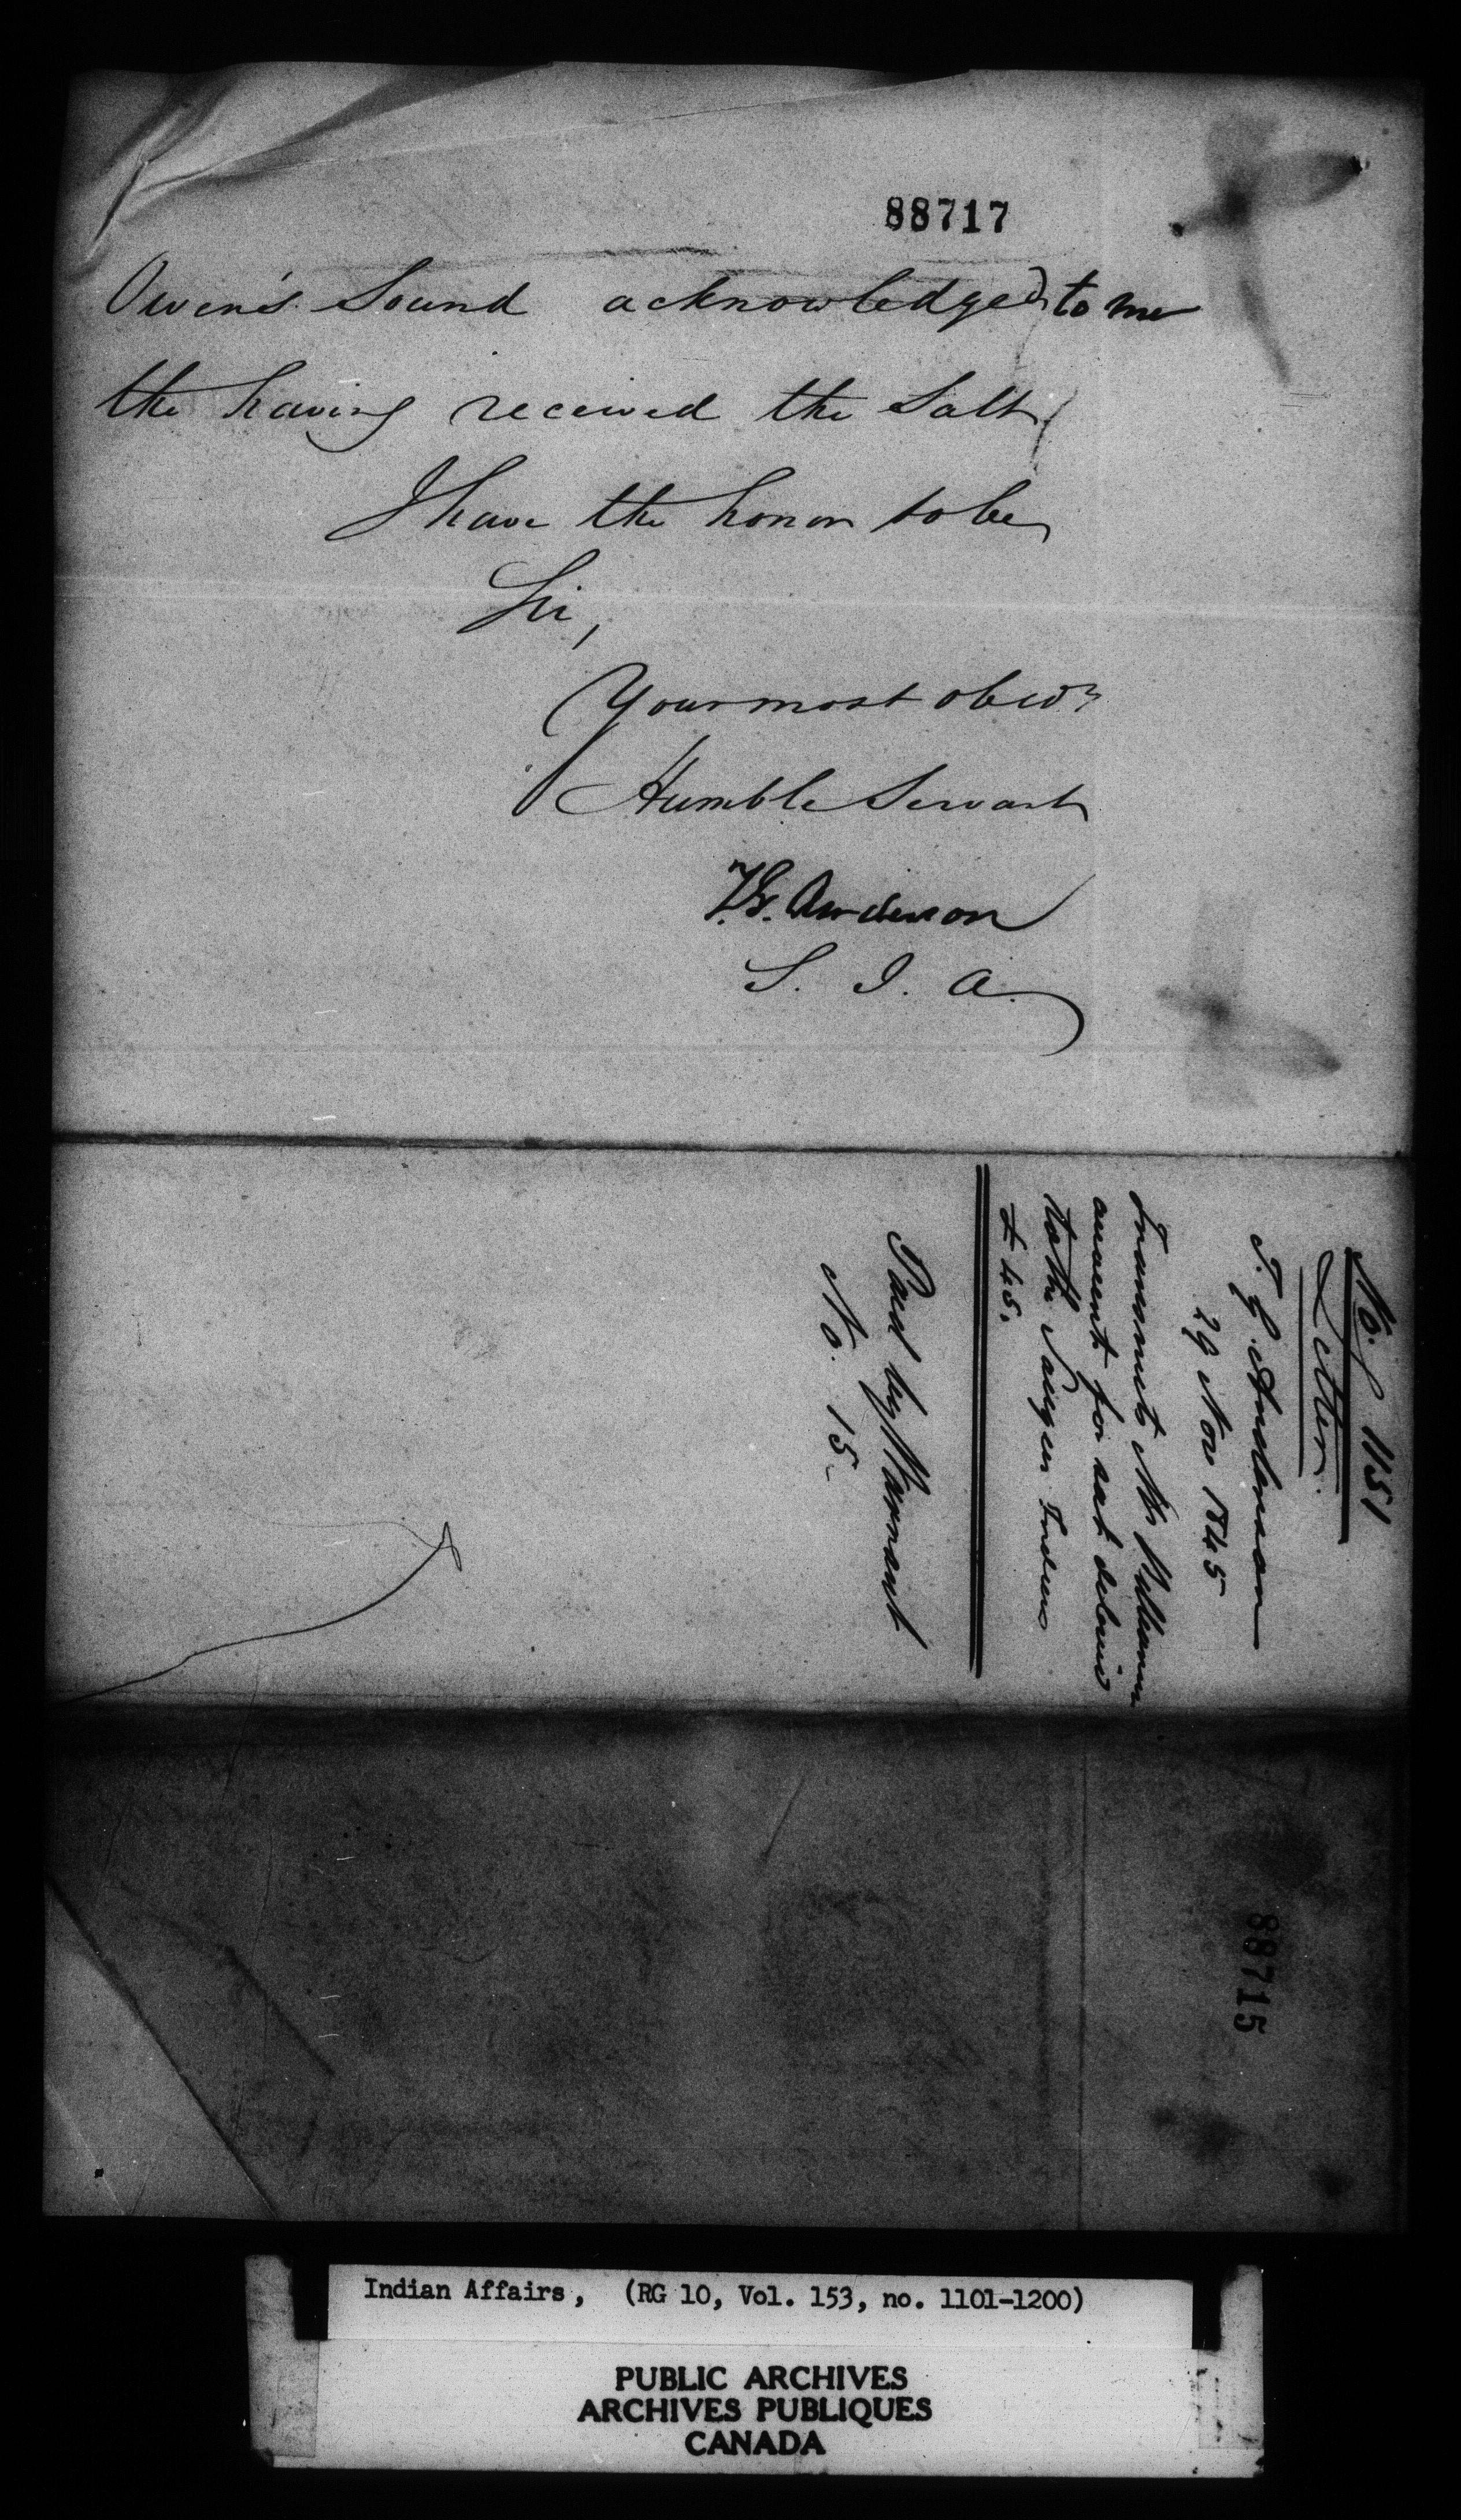 88717
Owen's Sound acknowledged to me
the having received the Salt
I have the honor to be
Sir,
Your most obedt
Humble Servant
T.G. Anderson
S. I. A.
No. 1151
Letter.
T. G. Anderson
29 Nov 1845
Transmits Mr
account for salt deliverd
to the Saugeen Indians
£ 45.
Paid by Warrant
No. 15
88715
Indian Affairs, (RG 10, Vol. 153, no. 1101-1200)
PUBLIC ARCHIVES
ARCHIVES PUBLIQUES
CANADA